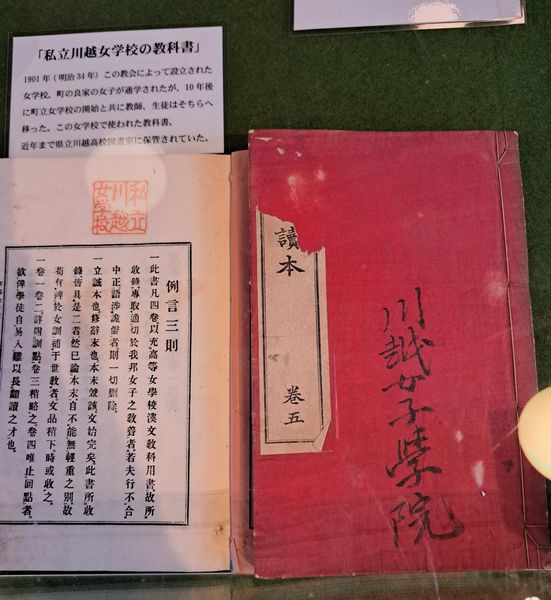 「私立川越女学校の教科書」
1901年(明治34年)この教会によって設立された
女学校。町の良家の女子が通学されたが、10年後
に町立女学校の開始と共に教師、生徒はそちらへ
移った。この女学校で使われた教科書。
近年まで県立川越高校図書室に保管されていた。
讀本
卷五
川越女子學院
私立
川越
女学校
例言三則
一此書凡四卷以充高等女學校漢文敎科用書故所
收錄專取適切於我邦女子之敎養者若夫行不合
中正語涉詭僻者則一切刪除
一立誠本也修辭末也本末兼該文始完矣此書所收
錄皆具是二者然已論本末自不能無輕重之別故
苟有裨於女訓補于世敎者文品稍下時或收之
一卷一卷二詳附訓點卷三稍略之卷四唯止回點者
欲俾學徒自易入難以長翻讀之才也